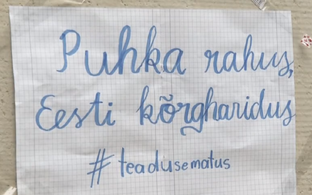 Puhka rahus,
Eesti kõrgharidus
#teadusematus